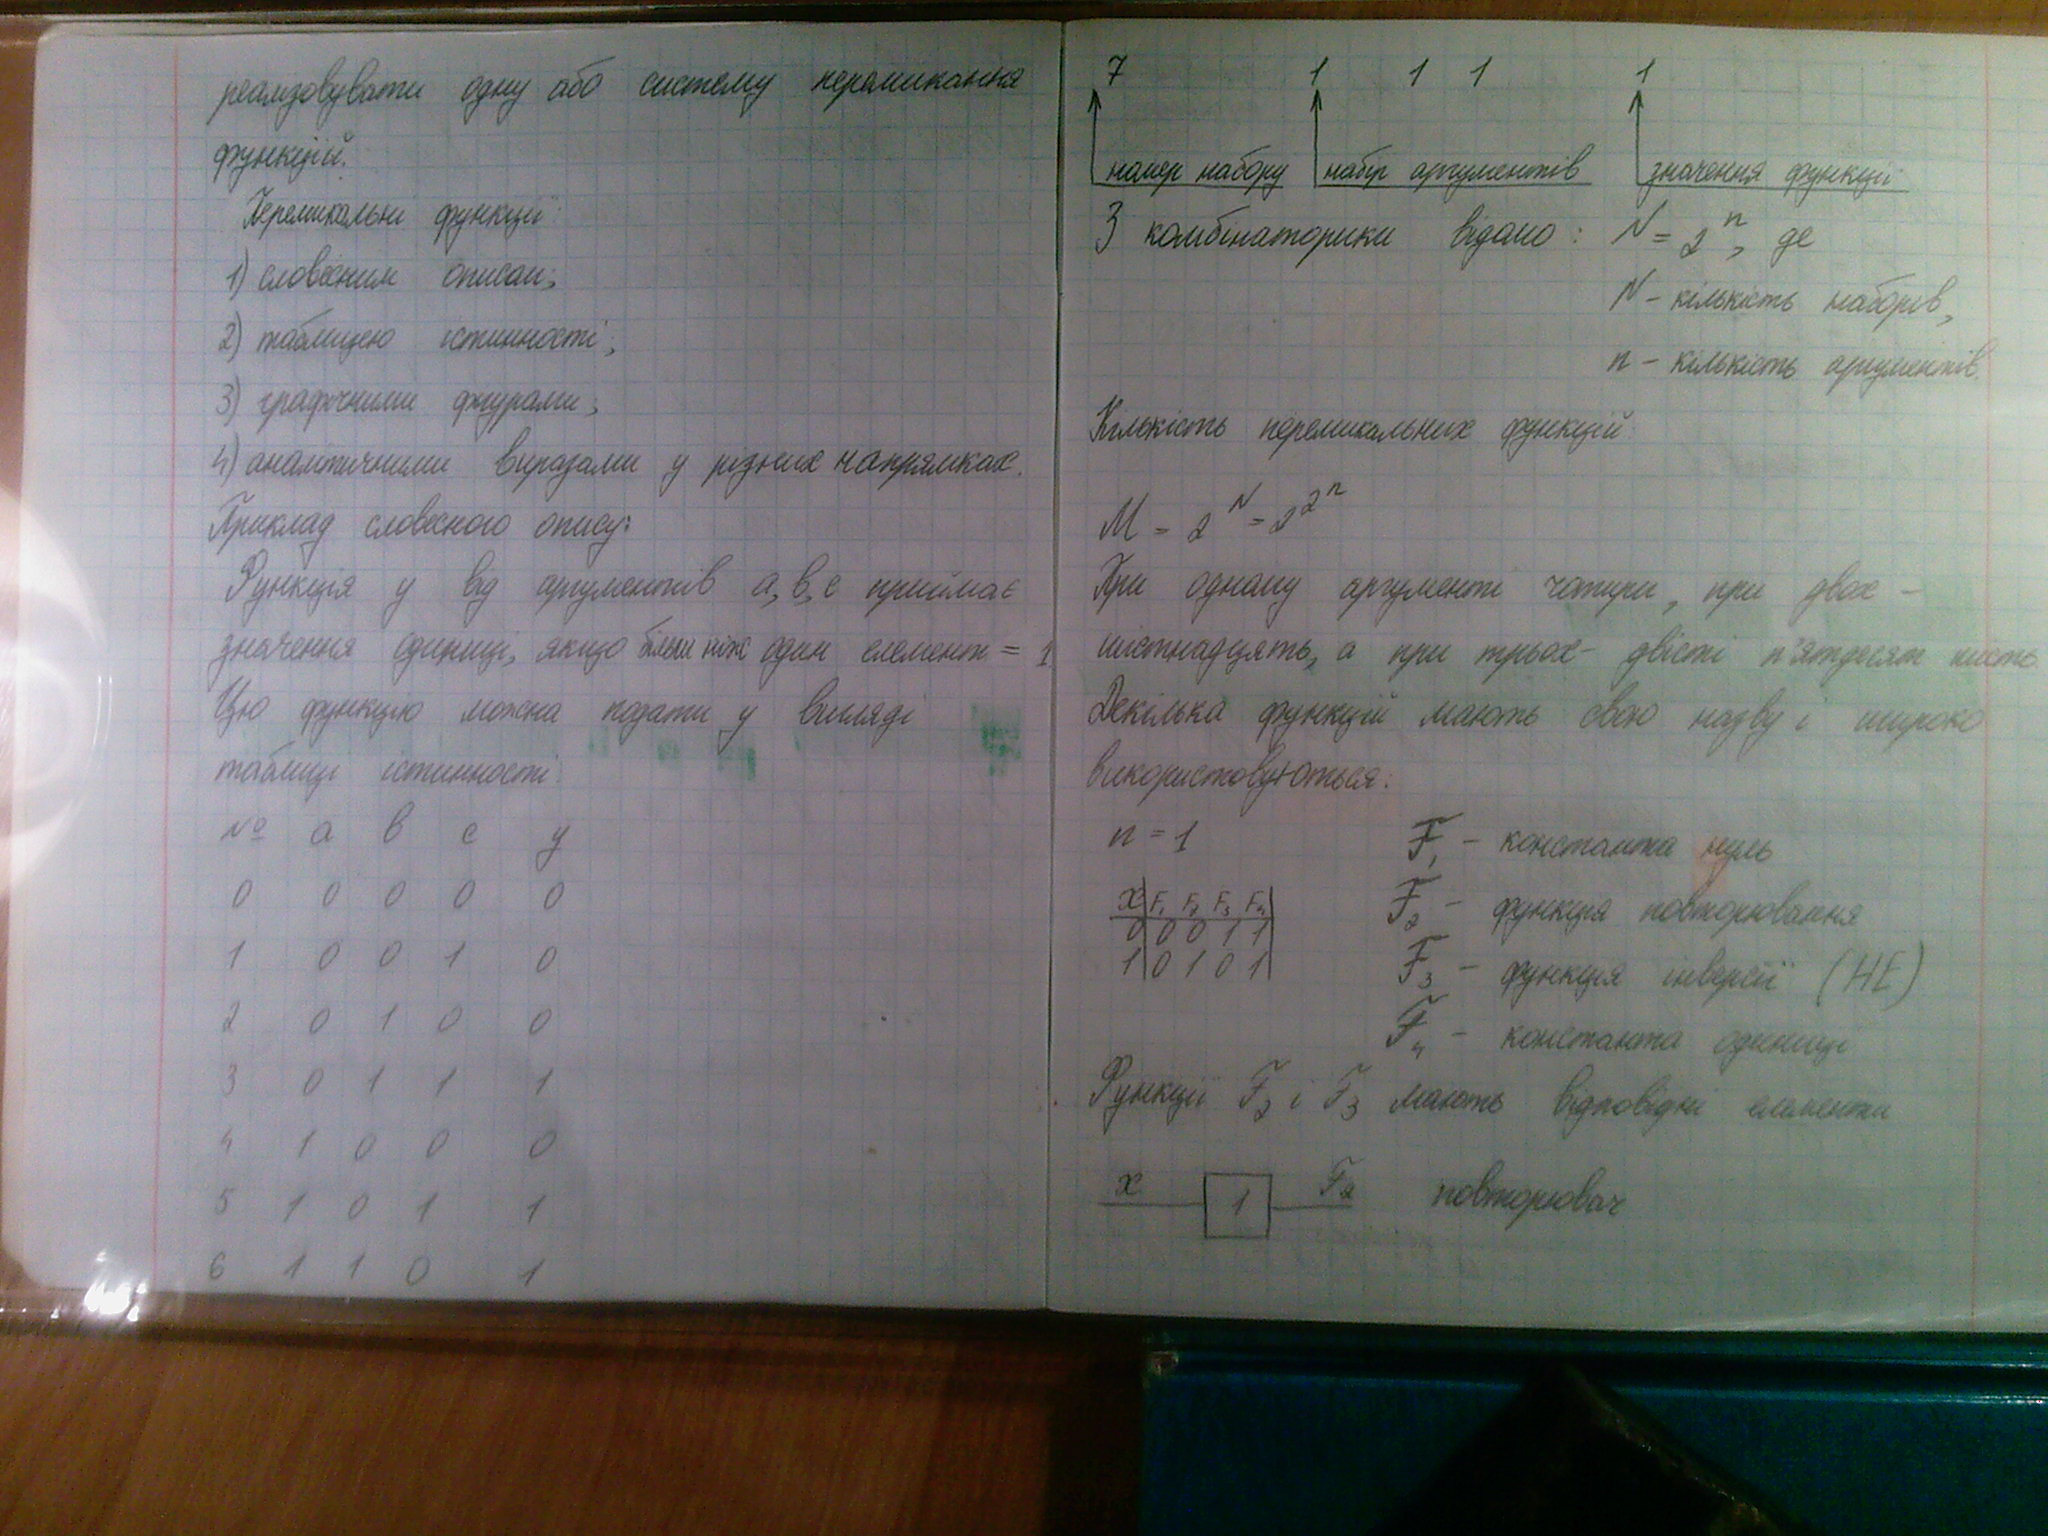 реалізовувати одну або систему перемикання
функцій.
Перемикальні функції:
1) словесним описом;
2) таблицею істинності;
3) графічними фігурами;
4) аналітичними виразами у різних напрямках.
Приклад словесного опису:
Функція у від аргументів а, в, с приймає
значення одиниці, якщо більш ніж один елемент = 1.
Цю функцію можна подати у вигляді
таблиці істинності:
№ а в с у
0 0 0 0 0
1 0 0 1 0
2 0 1 0 0
3 0 1 1 1
4 1 0 0 0
5 1 0 1 1
6 1 1 0 1
7 1 1 1 1
номер набору набір аргументів значення функції
З комбінаторики відомо: N = 2^n, де
N – кількість наборів,
n – кількість аргументів.
Кількість перемикальних функцій
M = 2^N = 2^2^n
При одному аргументі чотири, при двох –
шістнадцять, а при трьох – двісті п'ятдесят шість.
Декілька функцій мають свою назву і широко
використовуються:
n = 1 F1 – константа нуль
x F1 F2 F3 F4 F2 – функція повторювання
0 0 0 1 1
1 0 1 0 1 F3 – функція інверсії (НЕ)
F4 – константа одиниці
Функції F2 і F3 мають відповідні елементи
x 1 F2 повторювач